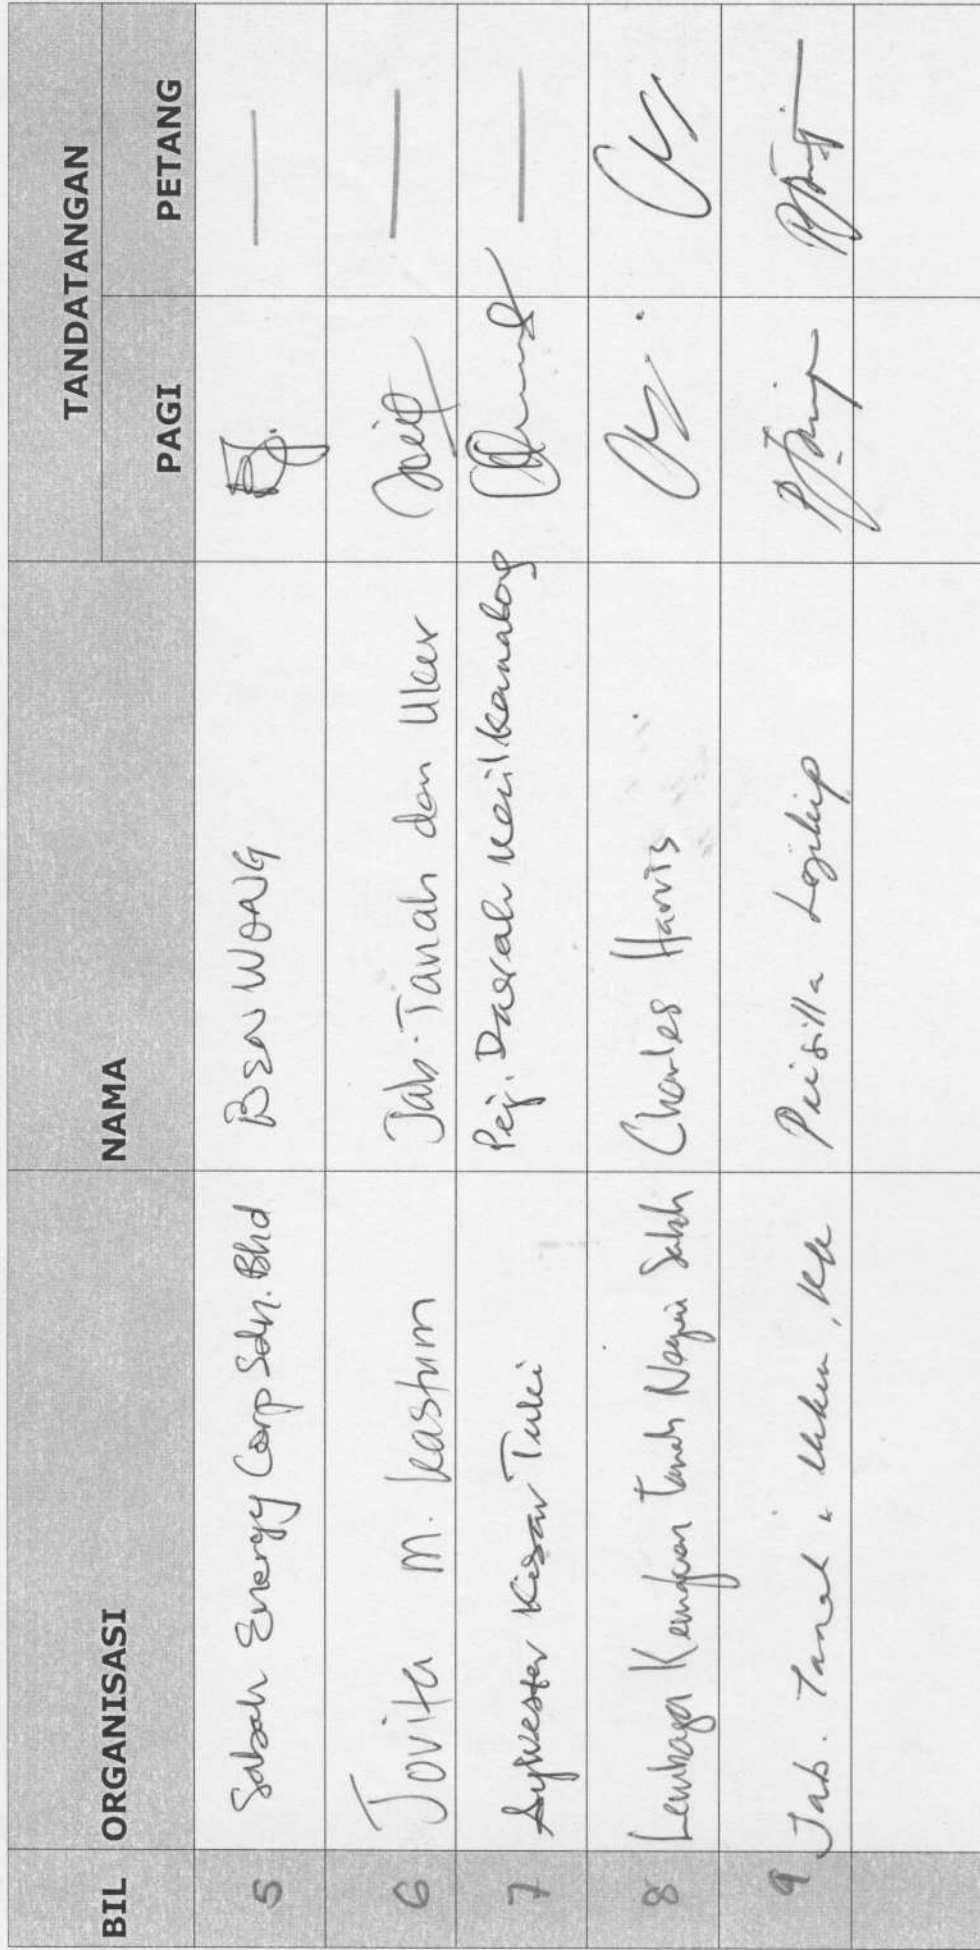 BIL ORGANISASI NAMA TANDATANGAN
PAGI PETANG
5 Sabah Energy Corp Sdn. Bhd BEN WONG
6 Jovita M. Kashum Jab. Tanah dan Ukur
7 Sylvester Kisar Tuki Pej. Daerah Kecil Kemabong
8 Lembaga Kemajuan Tanah Negeri Sabah Charles Harris
9 Jab. Tanah & Ukur, KK Prisilla